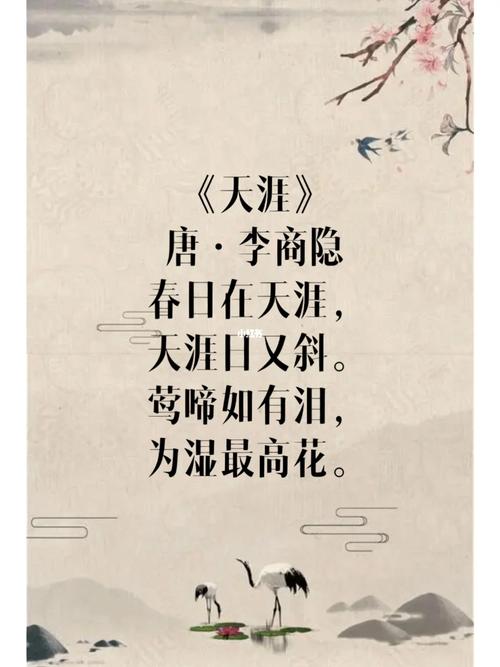 《天涯》
唐·李商隐
春日在天涯，
天涯日又斜。
小红书
莺啼如有泪，
为湿最高花。